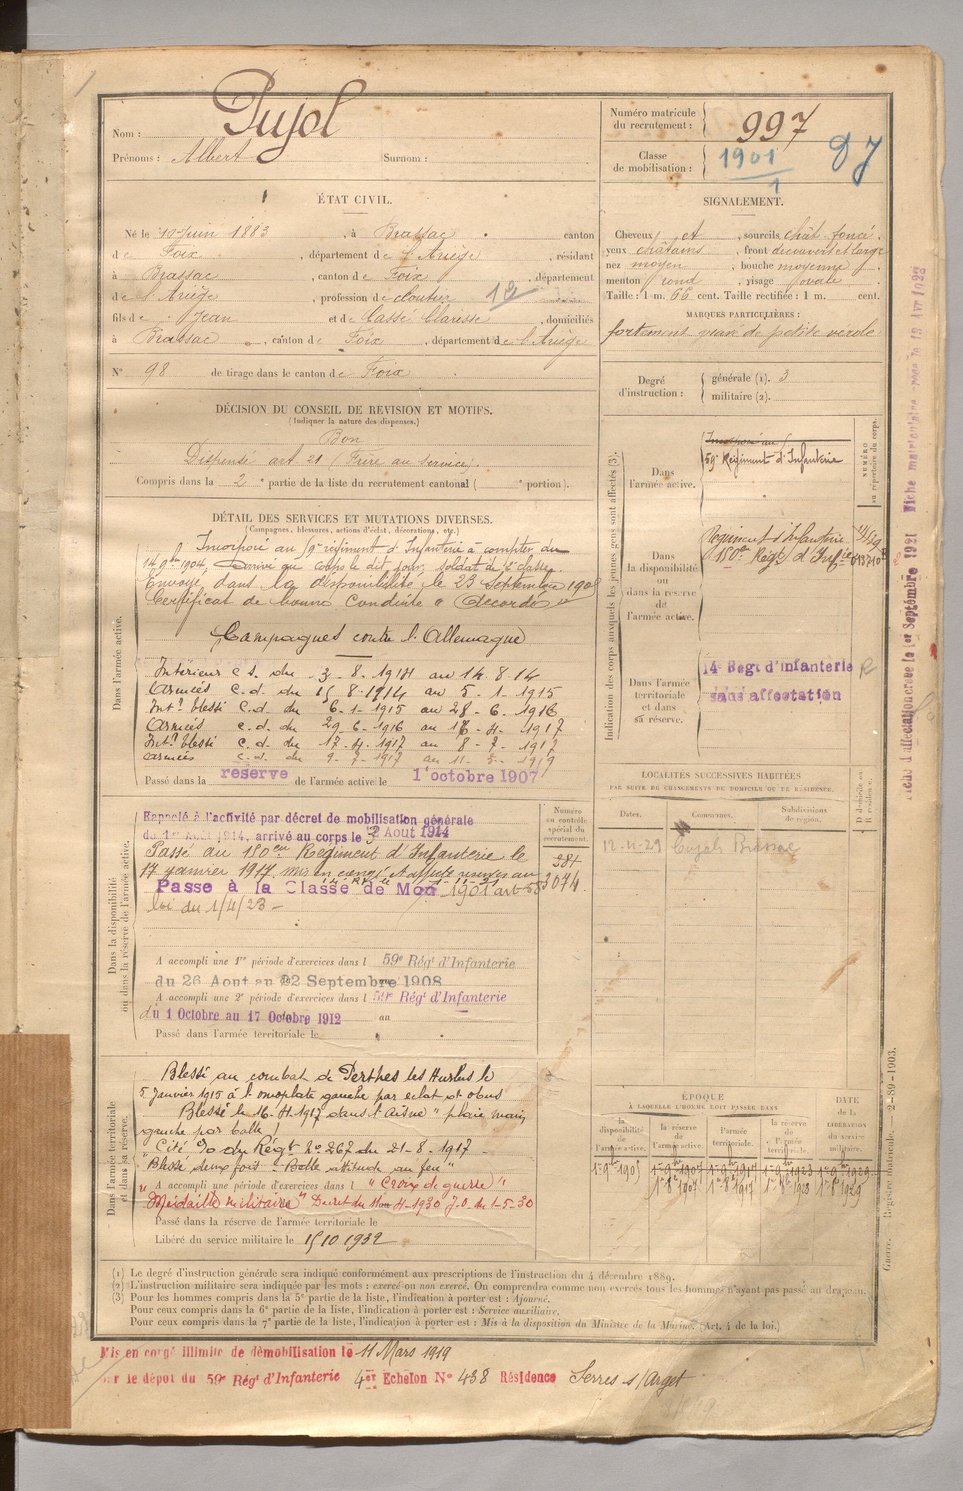 Nom : Pujol
Prénoms : Albert Surnom :
Numéro matricule du recrutement : 997
Classe de mobilisation : 1901
ÉTAT CIVIL.
Né le 10 Juin 1883, à Brassac canton
de Foix, département de l'Ariège, résidant
à Brassac, canton de Foix, département
de l'Ariège, profession de cloutier
fils de Jean et de Cassé Claresse, domiciliés
à Brassac, canton de Foix, département de l'Ariège
N° 98 de tirage dans le canton de Foix
SIGNALEMENT.
Cheveux et, sourcils chât. foncé.
yeux châtains, front découvert et large
nez moyen, bouche moyenne
menton rond, visage ovale
Taille : 1 m. 66 cent. Taille rectifiée : 1 m. cent.
MARQUES PARTICULIÈRES :
fortement gravé de petite verole
Degré d'instruction : générale (1). 3
militaire (2).
DÉCISION DU CONSEIL DE REVISION ET MOTIFS.
(Indiquer la nature des dispenses.)
Bon
Dispensé art. 21 (Frère au service)
Compris dans la 2e partie de la liste du recrutement cantonal ( e portion).
DÉTAIL DES SERVICES ET MUTATIONS DIVERSES.
(Campagnes, blessures, actions d'éclat, décorations, etc.)
Dans l'armée active.
Incorporé au 59e régiment d'Infanterie à compter du
14 9bre 1904, Arrivé au corps le dit jour, soldat de 2e classe.
Envoyé dans la disponibilité le 23 Septembre 1905
Certificat de bonne conduite "Accordé"
Campagnes contre l'Allemagne
Intérieur c.s. du 3-8-1914 au 14.8.14
Armées c.d. du 15-8-1914 au 5-1-1915
Intr blessé c.d. du 6-1-1915 au 28-6-1916
Armées c.d. du 29-6-1916 au 16-4-1917
Intr blessé c.d. du 17-4-1917 au 8-7-1917
Armées c.d. du 9-7-1917 au 11-3-1919
Passé dans la réserve de l'armée active le 1er octobre 1907
Indication des corps auxquels les jeunes gens sont affectés (3).
NUMÉRO au répertoire du corps.
Dans l'armée active.
Incorporé au
59e Régiment d'Infanterie
Dans la disponibilité ou dans la réserve de l'armée active.
Régiment d'Infanterie
180e Régt d'Infie
Dans l'armée territoriale et dans sa réserve.
14e Regt d'infanterie
sans affectation
Dans la disponibilité ou dans la réserve de l'armée active.
Rappelé à l'activité par décret de mobilisation générale
du 1er Août 1914, arrivé au corps le 3 Aout 1914
Passé au 180eme Régiment d'Infanterie le
17 janvier 1917.
Passe à la Classe de Mob 1901 art 58
loi du 1/4/23 -
Numéro au contrôle spécial du recrutement.
284
3074
A accompli une 1re période d'exercices dans l 59e Régt d'Infanterie
du 26 Aout au 22 Septembre 1908
A accompli une 2e période d'exercices dans l 59e Régt d'Infanterie
du 1 Octobre au 17 Octobre 1912 au
Passé dans l'armée territoriale le
LOCALITÉS SUCCESSIVES HABITÉES
PAR SUITE DE CHANGEMENTS DE DOMICILE OU DE RÉSIDENCE.
Dates. Communes. Subdivisions de région. D domicile ou R résidence.
12-11-29 Brassac
Dans l'armée territoriale et dans sa réserve.
Blessé au combat de Perthes les Hurlus le
5 Janvier 1915 à l'omoplate gauche par éclat d'obus
Blessé le 16-4-1917 dans l'Aisne "plaie main
gauche par balle"
Cité O du Régt N° 267 du 21-8-1917
"Blessé deux fois - Belle attitude au feu"
A accompli une période d'exercices dans l "Croix de guerre"
"Médaille militaire" Decret du 4-1930 J.O. du 1-5-30
Passé dans la réserve de l'armée territoriale le
Libéré du service militaire le 15 10 1932
ÉPOQUE
À LAQUELLE L'HOMME DOIT PASSER DANS
la disponibilité de l'armée active. la réserve de l'armée active. l'armée territoriale. la réserve de l'armée territoriale.
DATE de la LIBÉRATION du service militaire.
1er 9bre 1905 1er 9bre 1907 1er 9bre 1917 1er 9bre 1923 1er 9bre 1929
1er 8bre 1907 1er 8bre 1917 1er 8bre 1923 1er 8bre 1929
(1) Le degré d'instruction générale sera indiqué conformément aux prescriptions de l'instruction du 4 décembre 1889.
(2) L'instruction militaire sera indiquée par les mots : exercé ou non exercé. On comprendra comme non exercés tous les hommes n'ayant pas passé au drapeau.
(3) Pour les hommes compris dans la 5e partie de la liste, l'indication à porter est : Ajourné.
Pour ceux compris dans la 6e partie de la liste, l'indication à porter est : Service auxiliaire.
Pour ceux compris dans la 7e partie de la liste, l'indication à porter est : Mis à la disposition du Ministre de la Marine. (Art. 4 de la loi.)
Mis en congé illimité de démobilisation le 11 Mars 1919
sur le dépot du 59e Régt d'Infanterie 4er Echelon N° 438 Résidence Serres s/Arget
Guerre. Registre matricule. — 2-89-1903.